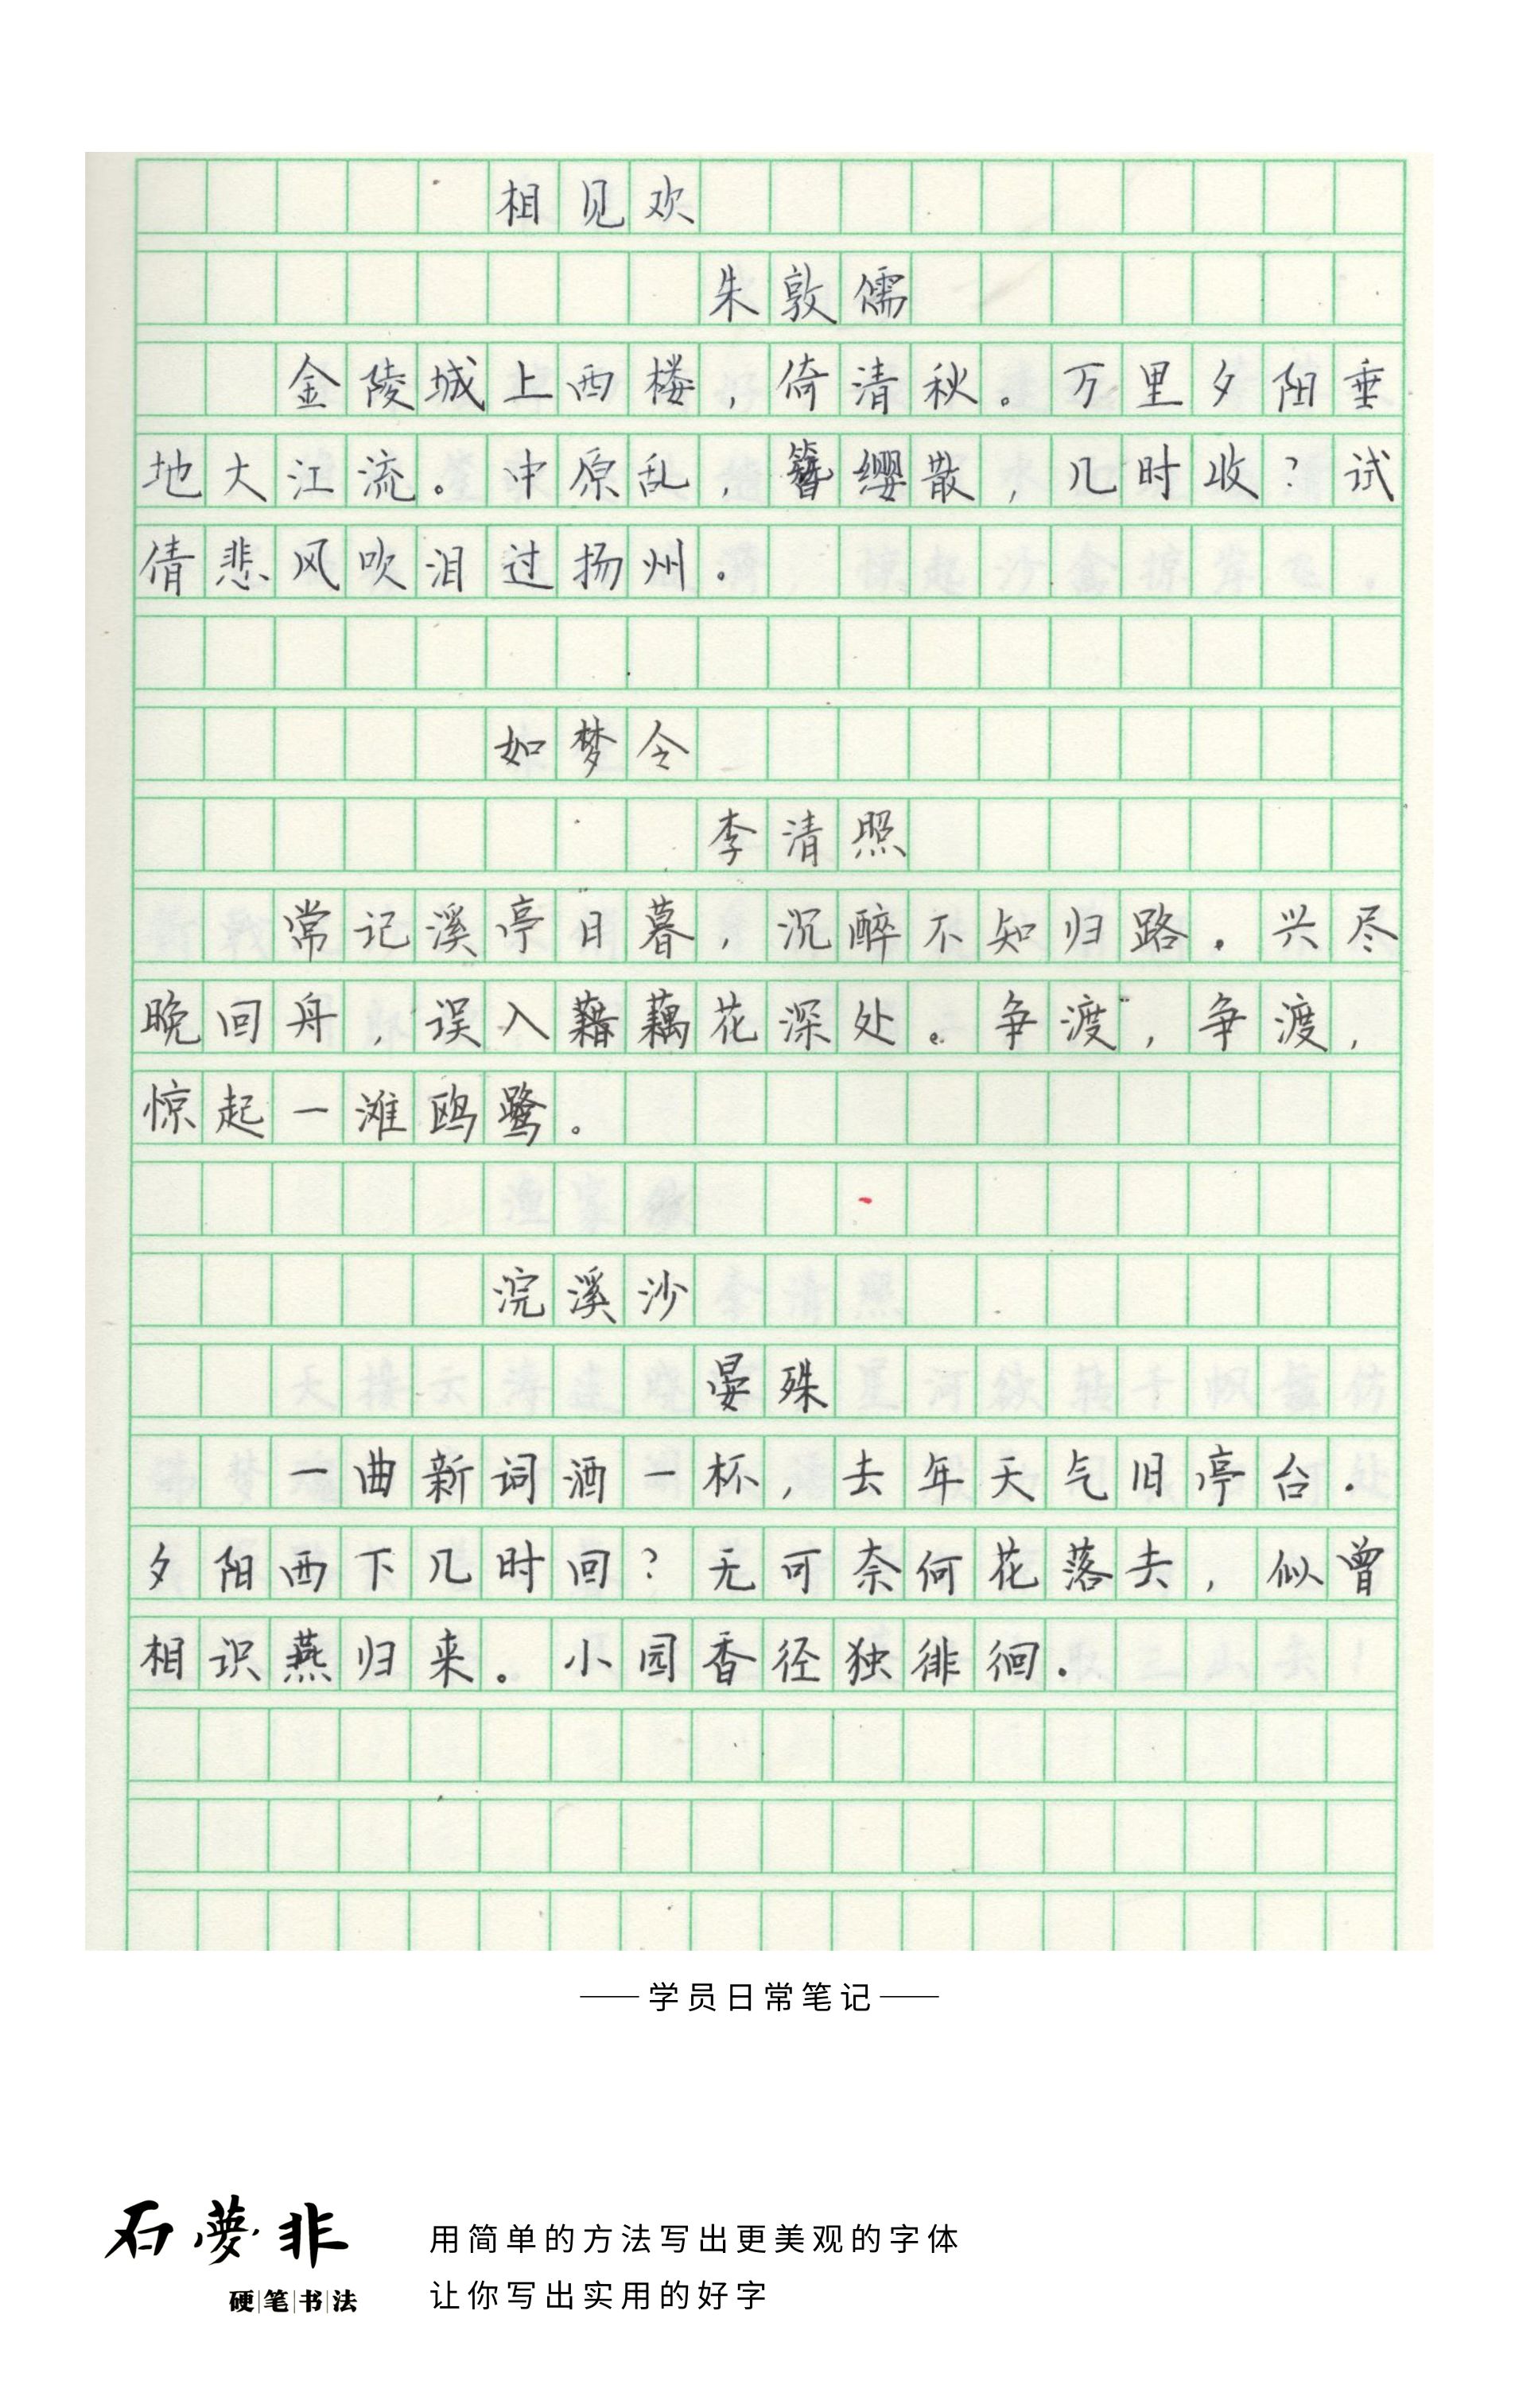 相见欢
朱敦儒
金陵城上西楼，倚清秋。万里夕阳垂
地大江流。中原乱，簪缨散，几时收？试
倩悲风吹泪过扬州。
如梦令
李清照
常记溪亭日暮，沉醉不知归路。兴尽
晚回舟，误入藕藕花深处。争渡，争渡，
惊起一滩鸥鹭。
浣溪沙
晏殊
一曲新词酒一杯，去年天气旧亭台。
夕阳西下几时回？无可奈何花落去，似曾
相识燕归来。小园香径独徘徊。
学员日常笔记
石夢非
硬笔书法
用简单的方法写出更美观的字体
让你写出实用的好字